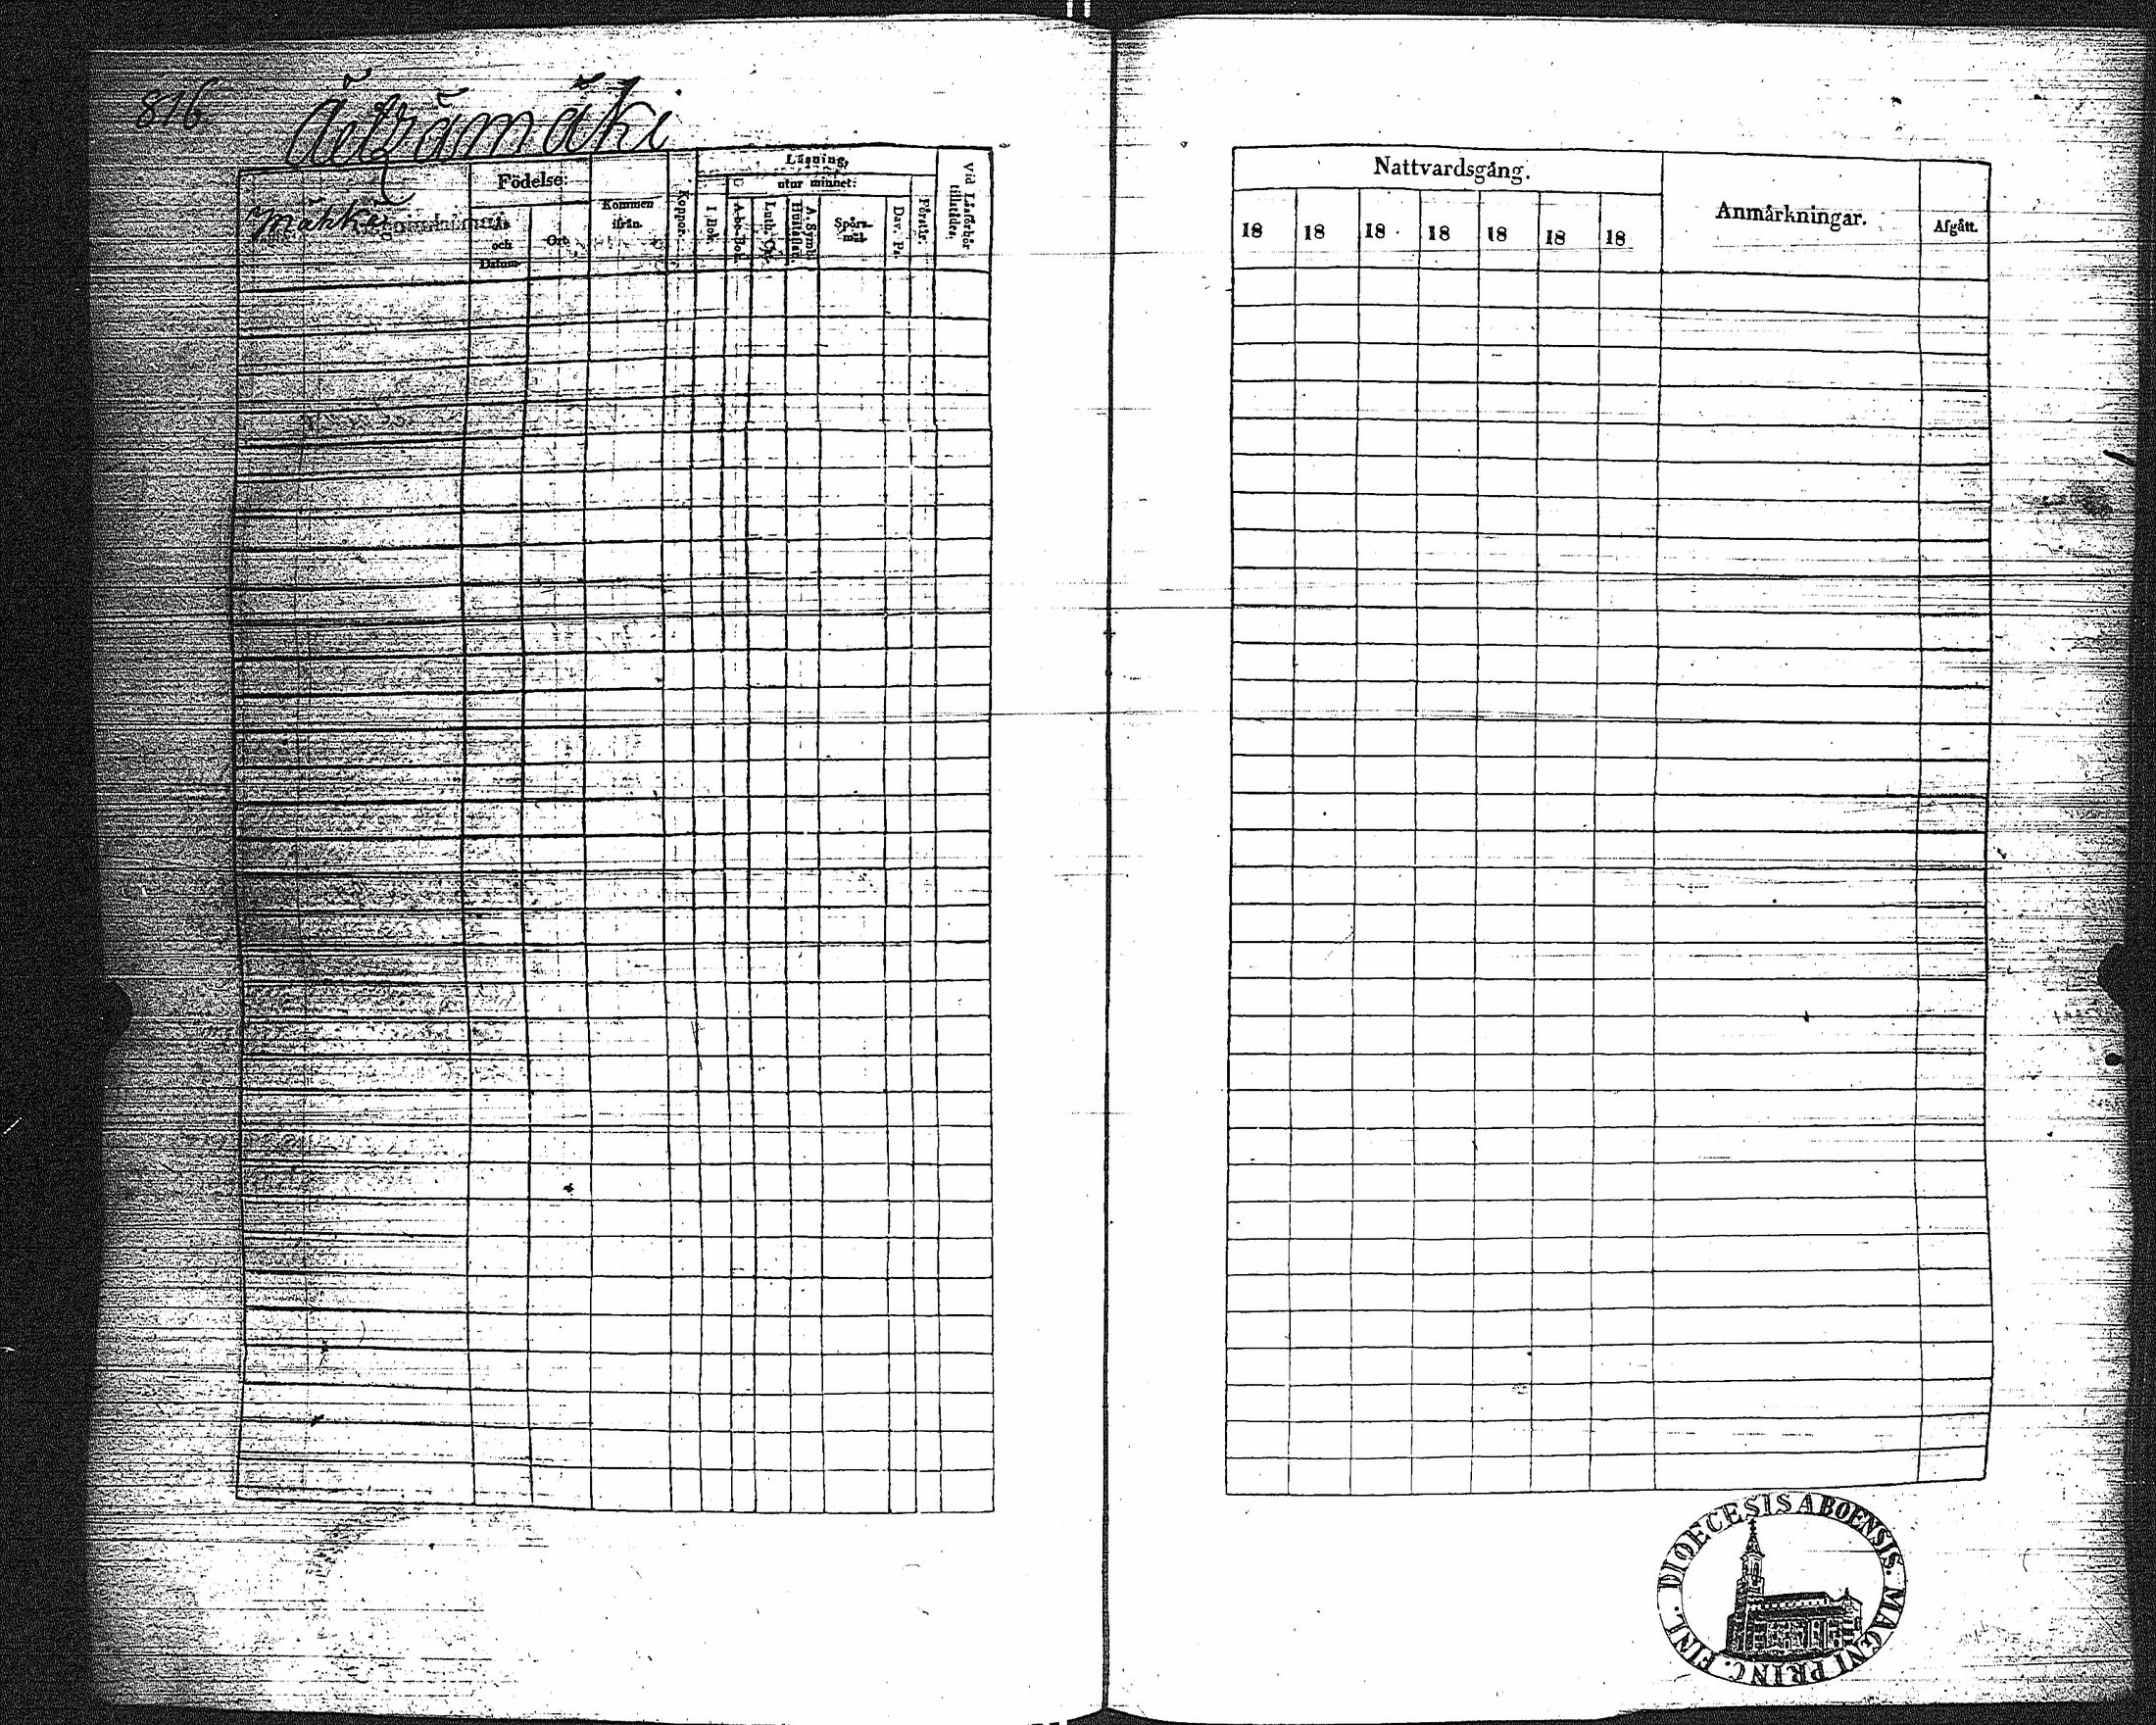 816
Läsning,
Födelse:
utur minnet:
Kommen
ifrån.
Koppor.
I Bok.
A-bc-Bok.
Luth. Cat.
Hustaflan.
A. Symb.
Spörs-
mål
Dav. Ps.
Förstår.
Vid Läsförhör
tillstädes.
År
och
Datum
Ort
Mähkä
Nattvardsgång.
Anmärkningar.
Afgått.
18 18 18 18 18 18 18
DIOECESIS ABOENSIS. MAGNI PRINC. FINL.